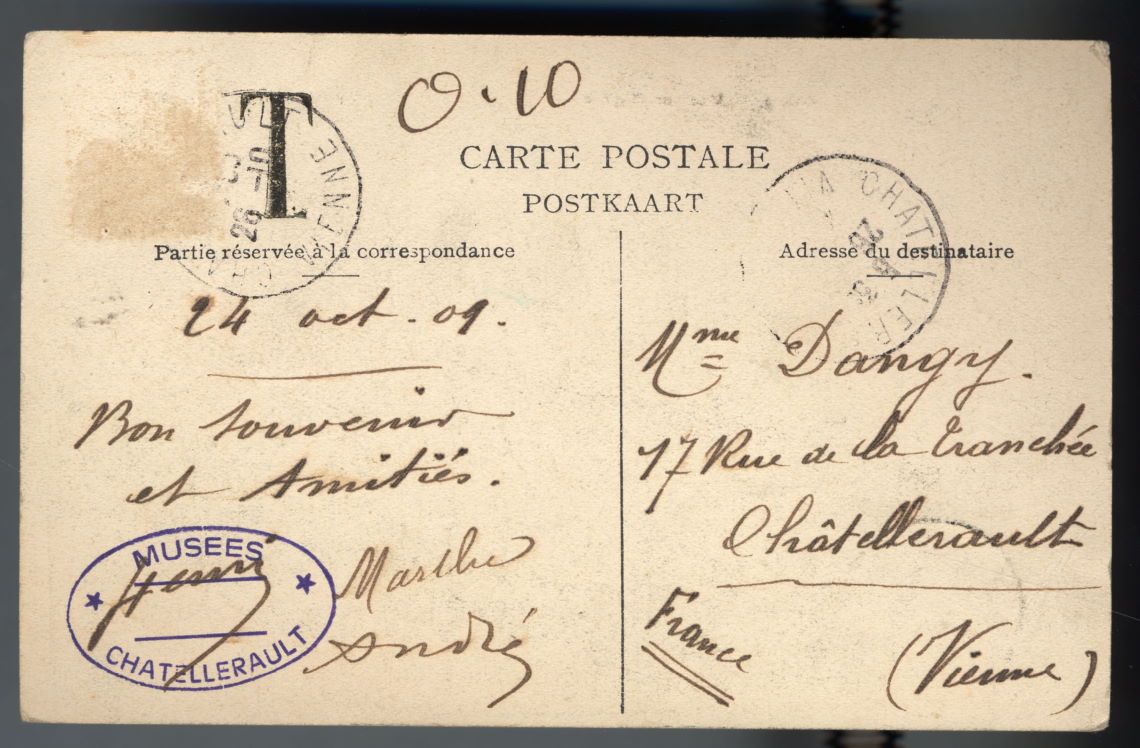 T
0.10
CARTE POSTALE
POSTKAART
Partie réservée à la correspondance
Adresse du destinataire
VIENNE
26
CHATELLER
24 oct. 09.
Bon souvenir
et Amitiés.
Henri
Marthe
André
MUSEES
CHATELLERAULT
Mme Dangy.
17 Rue de la Tranchée
Châtellerault
France
(Vienne)